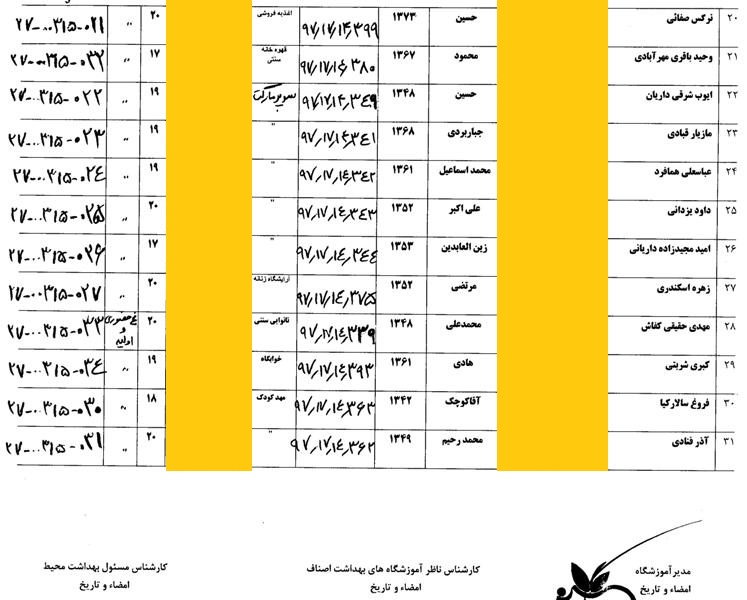 ۲۰ نرگس صفائی حسین ۱۳۷۳ ۹۷/۱۷/۱۴/۳۹۹ اغذیه فروشی ۲۰ " ۲۷-۰۰۳۱۵-۰۲۱
۲۱ وحید باقری مهرآبادی محمود ۱۳۶۷ ۹۷/۱۷/۱۴/۳۸۰ قهوه خانه سنتی ۱۷ "
۲۲ ایوب شرقی داریان حسین ۱۳۴۸ ۹۷/۱۷/۱۴/۳۴۹ سوپر مارکت ۱۹ " ۲۷-۰۰۳۱۵-۰۲۲
۲۳ مازیار قبادی جباربردی ۱۳۶۸ ۹۷/۱۷/۱۴/۳۴۱ " ۱۹ " ۲۷-۰۰۳۱۵-۰۲۳
۲۴ عباسعلی همافرد محمد اسماعیل ۱۳۶۱ ۹۷/۱۷/۱۴/۳۴۲ " ۱۹ " ۲۷-۰۰۳۱۵-۰۲۴
۲۵ داود یزدانی علی اکبر ۱۳۵۲ ۹۷/۱۷/۱۴/۳۴۳ " ۲۰ " ۲۷-۰۰۳۱۵-۰۲۵
۲۶ امید مجیدزاده داریانی زین العابدین ۱۳۵۳ ۹۷/۱۷/۱۴/۳۴۴ " ۱۷ " ۲۷-۰۰۳۱۵-۰۲۶
۲۷ زهره اسکندری مرتضی ۱۳۵۲ ۹۷/۱۷/۱۴/۳۷۵ آرایشگاه زنانه ۲۰ " ۲۷-۰۰۳۱۵-۰۲۷
۲۸ مهدی حقیقی کفاش محمدعلی ۱۳۴۸ ۹۷/۱۷/۱۴/۳۳۹ نانوایی سنتی ۲۰ ۴ حضوری و اولیه ۲۷-۰۰۳۱۵-۰۳۳
۲۹ کبری شربتی هادی ۱۳۶۱ ۹۷/۱۷/۱۴/۳۹۳ خوابگاه ۱۹ " ۲۷-۰۰۳۱۵-۰۳۴
۳۰ فروغ سالارکیا آقاکوچک ۱۳۴۲ ۹۷/۱۷/۱۴/۳۶۳ مهد کودک ۱۸ " ۲۷-۰۰۳۱۵-۰۳۰
۳۱ آذر قنادی محمد رحیم ۱۳۴۹ ۹۷/۱۷/۱۴/۳۶۲ " ۲۰ " ۲۷-۰۰۳۱۵-۰۳۱
مدیر آموزشگاه کارشناس ناظر آموزشگاه های بهداشت اصناف کارشناس مسئول بهداشت محیط
امضاء و تاریخ امضاء و تاریخ امضاء و تاریخ